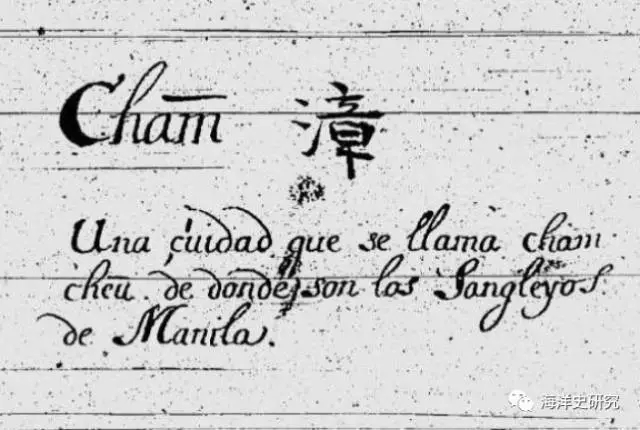 Cham̅ 漳
Una çuidad que se llama cham
cheu. de donde son los Sangleyos.
de Manila.
海洋史研究